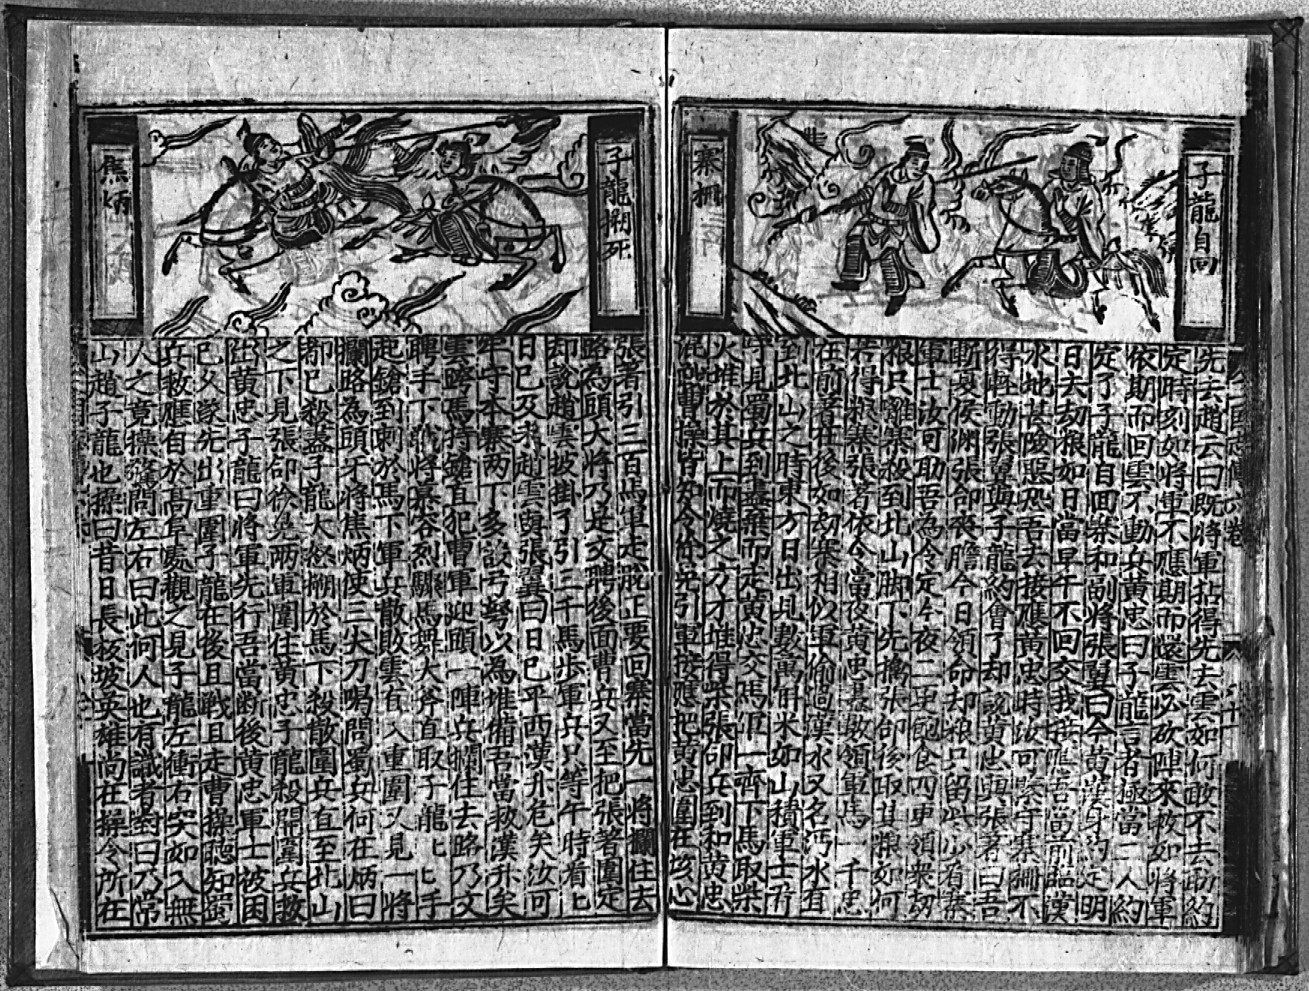 子龍自回
寨柵
先去趙云曰既將軍拈得先去雲如何敢不去動約
定時刻如將軍不應期而還雲必砍陣來救如將軍
依期而回雲不動兵黃忠曰子龍言者極當二人約
定了子龍自回寨和副將張翼曰今黃漢升約定明
日去劫粮如日當早午不回交我接應吾當前臨漢
水地甚險惡恐吾去接應黃忠時汝可緊守寨柵不
得軽動張翼與子龍約會了却說黃忠與張著曰吾
斬夏侯淵張郃喪膽今日領命去劫粮只留些少看寨
軍士汝可助吾為今定今夜二更飽食四更領衆劫
粮只離寨殺到北山脚下先擒張郃後取其粮如何
若得粮寨張著依令當夜黃忠甚數領軍馬一千忠
在前著在後如劫寨相似軍偷過漢水又名沔水直
到北山之時東方日出見數萬斛米如山積軍士看
守見蜀兵到盡棄而走黃忠交馬軍一齊下馬取柴
火堆於其上而燒之方才堆得柴張郃兵到和黃忠
混戰曹操皆知令徐晃引軍接應把黃忠圍在垓心
三國志傳 六卷
子龍搠死
焦炳
張著引三百馬軍走脫正要回寨當先一將攔住去
路為頭大將乃是文聘後面曹兵又至把張著圍定
却說趙雲披掛了引三千馬步軍兵只等午時看七
日已及未趙雲與張翼曰日已平西漢升危矣汝可
牢守本寨两下多設弓弩以為堆備吾當救漢升矣
雲跨馬持鎗直犯曹軍迎頭一陣兵攔住去路乃文
聘手下戰將慕容烈驟馬舞大斧直取子龍七七手
起鎗到刺於馬下軍兵散敗雲直入重圍又見一將
攔路為頭牙將焦炳使三尖刀喝問蜀兵何在炳曰
都已殺盡子龍大怒搠於馬下殺散圍兵直至北山
之下見張郃徐晃两軍圍住黃忠子龍殺開圍兵救
出黃忠子龍曰將軍先行吾當断後黃忠軍士被困
已久遂先出重圍子龍在後且戰且走曹操聽知蜀
兵救應自於高阜處觀之見子龍左衝右突如入無
人之竟操驚問左右曰此何人也有識者對曰乃常
山趙子龍也操曰昔日長坂坡英雄尚在操令所在